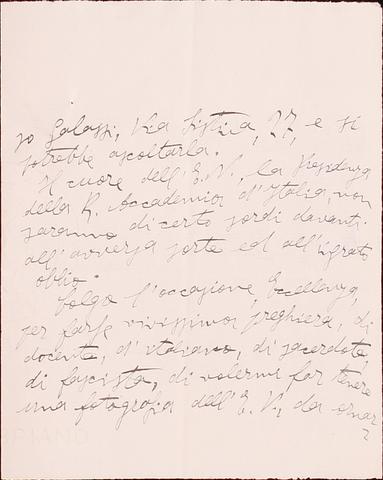 so Galassi, Via Sistina, 27, e si
potrebbe ascoltarla.
Il cuore dell'E. V., la Presidenza
della R. Accademia d'Italia, non
saranno di certo sordi davanti
all'avversa sorte ed all'ingrato
oblio.
Colgo l'occasione, Eccellenza,
per farLe vivissima preghiera, di
docente, d'italiano, di sacerdote,
di fascista, di volermi far tenere
una fotografia dell'E. V., da ornar